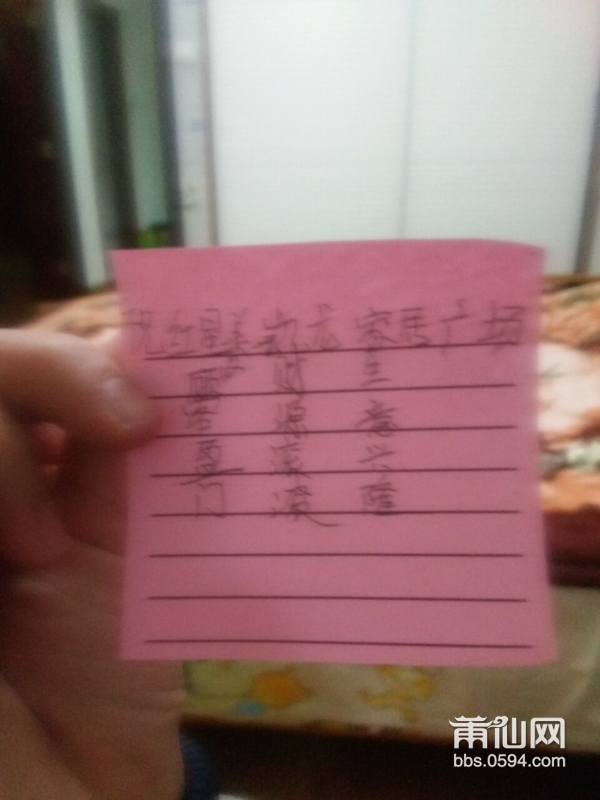 祝红星美凯龙家居广场
生意兴隆
财源滚滚
门
莆仙网
bbs.0594.com